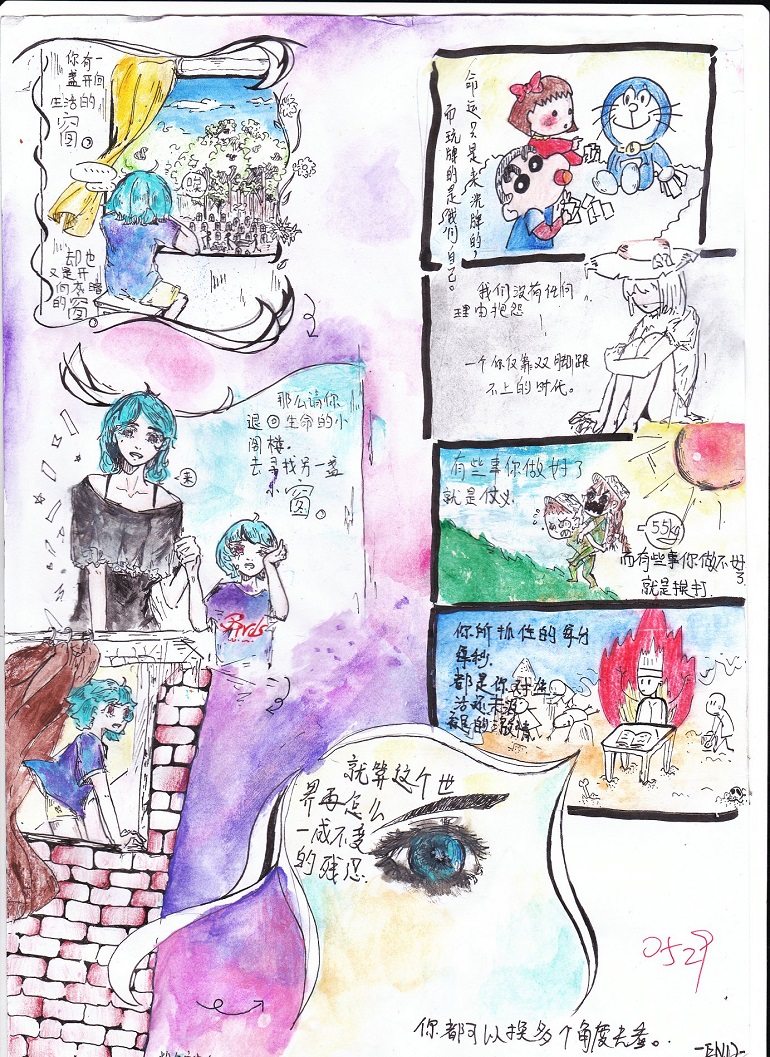 你有一
盏开向
生活的
窗。
……
哭
却也
又是开
向灰暗
的窗。
那么请你
退回生命的小
阁楼.
去寻找另一盏
小窗。
来
Birds
就算这个世
界再怎么
一成不变
的残忍.
你都可以换多个角度去看。
命运只是来洗牌的，
而玩牌的是我们自己。
我们没有任何
理由抱怨
一个你仅靠双脚跟
不上的时代。
有些事你做好了
就是仗义.
55kg
而有些事你做不好
了
就是挨打.
你所抓住的每分
每秒.
都是你对生
活还未泯
的激情.
0529
-END-